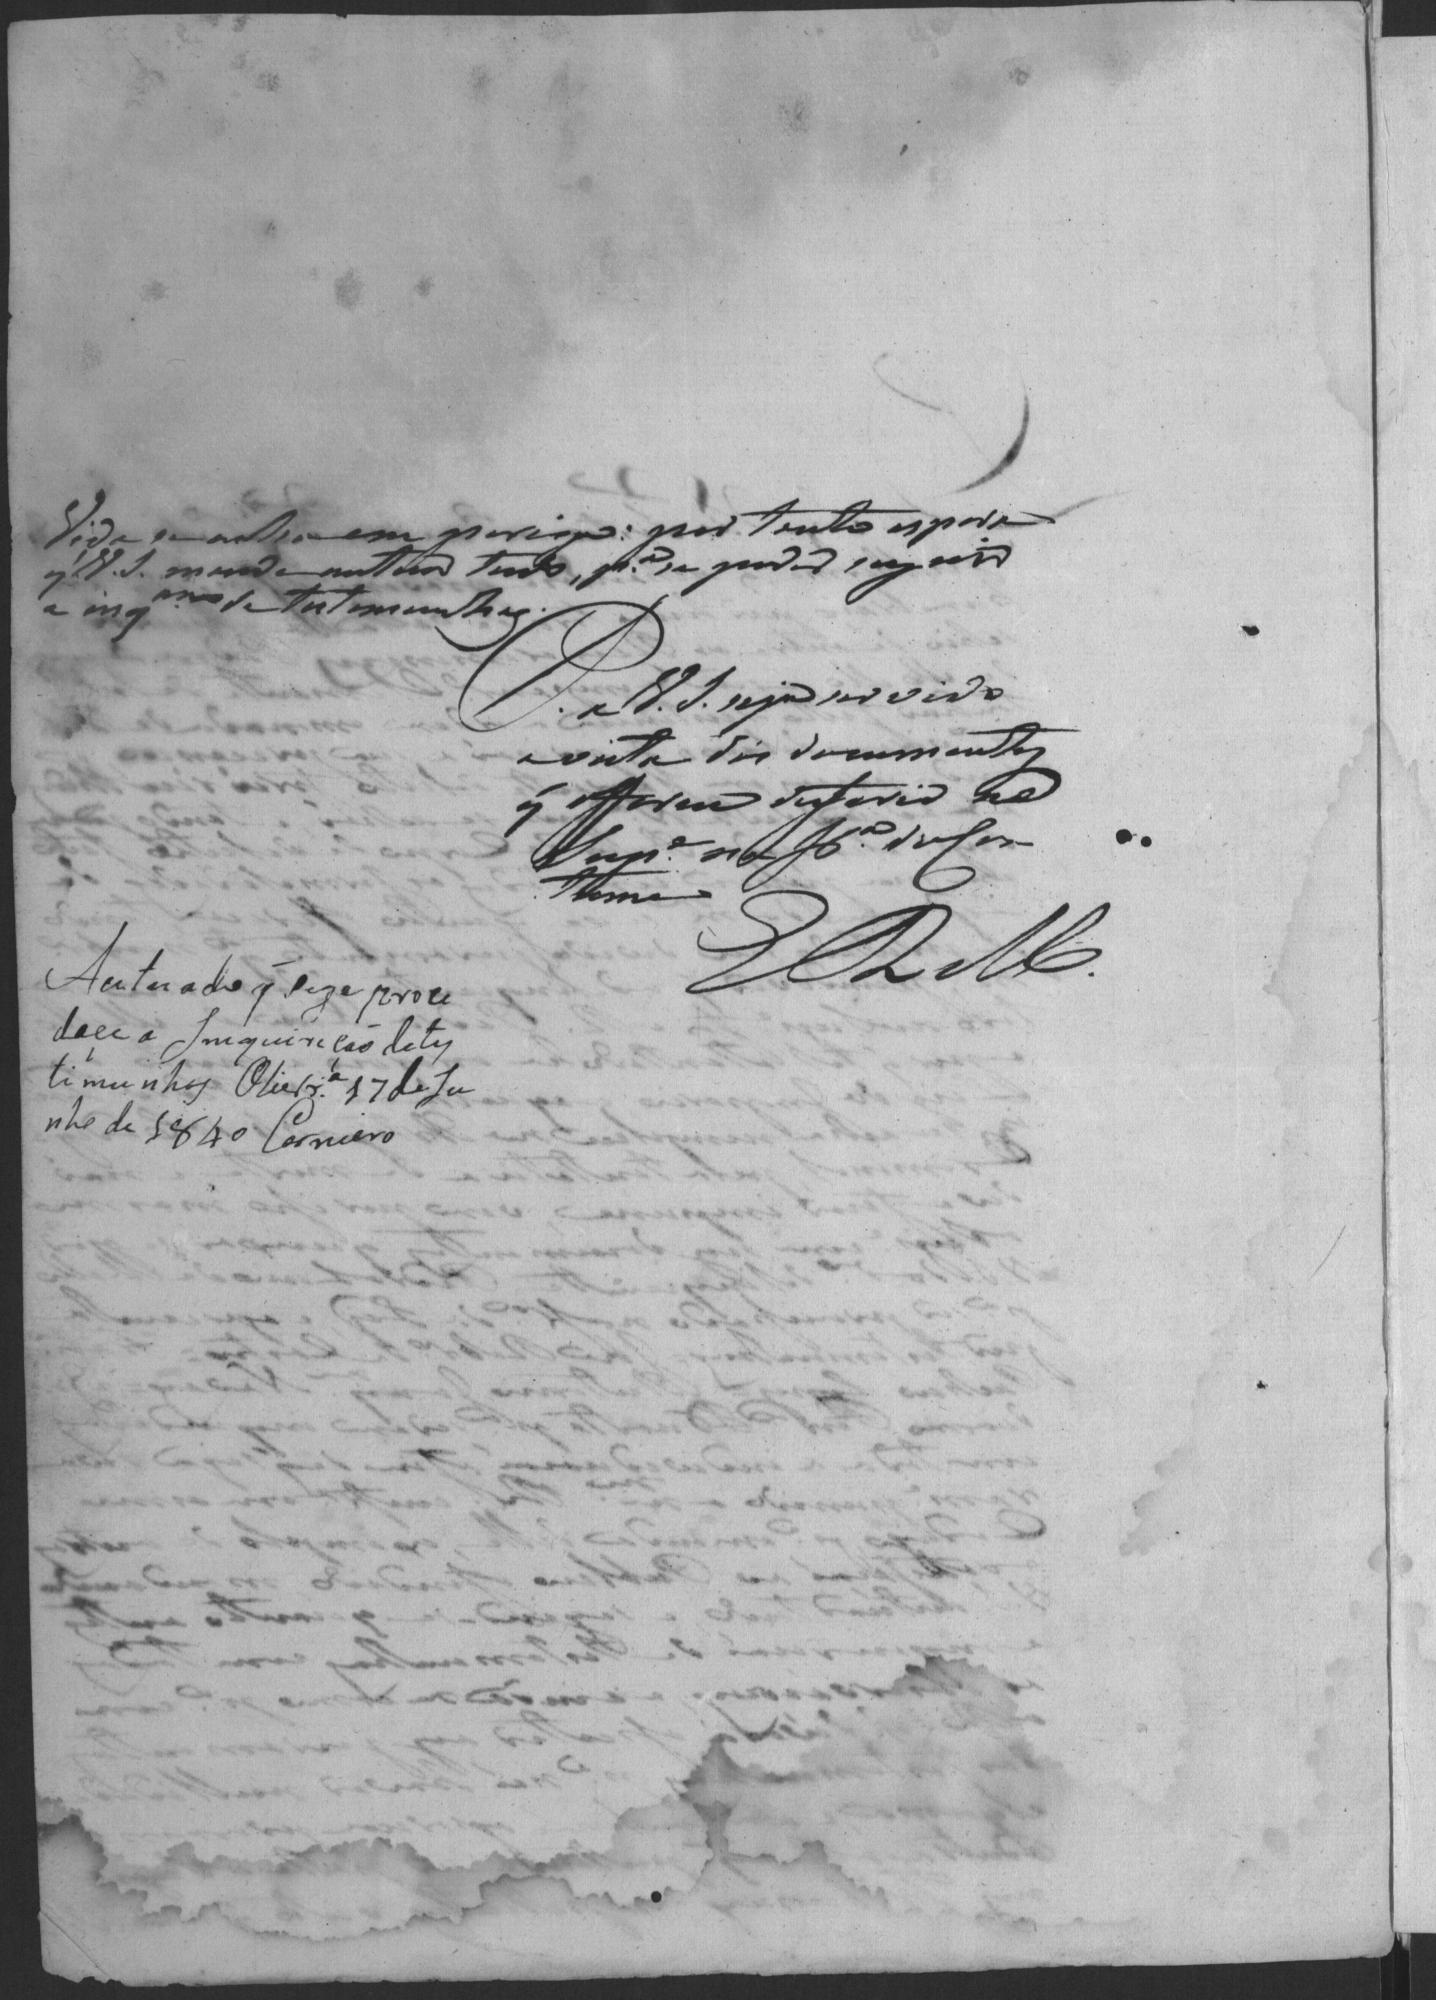 Vida se acha em perigo: por tanto espera
q̃ V. S. mande autuar tudo, p.ª se poder seguir
a inq.am de testemunhas.
P. a V. S. seja servido
a vista dos documentos
q̃ offerece deferir ao
Sup.e na fr.ª do Cos
tume
E R M.ce
Autuado q̃ seja proce
dace a Inquirição de tes
timunhas Oliv.rª 17 de Ju
nho de 1840 Carneiro